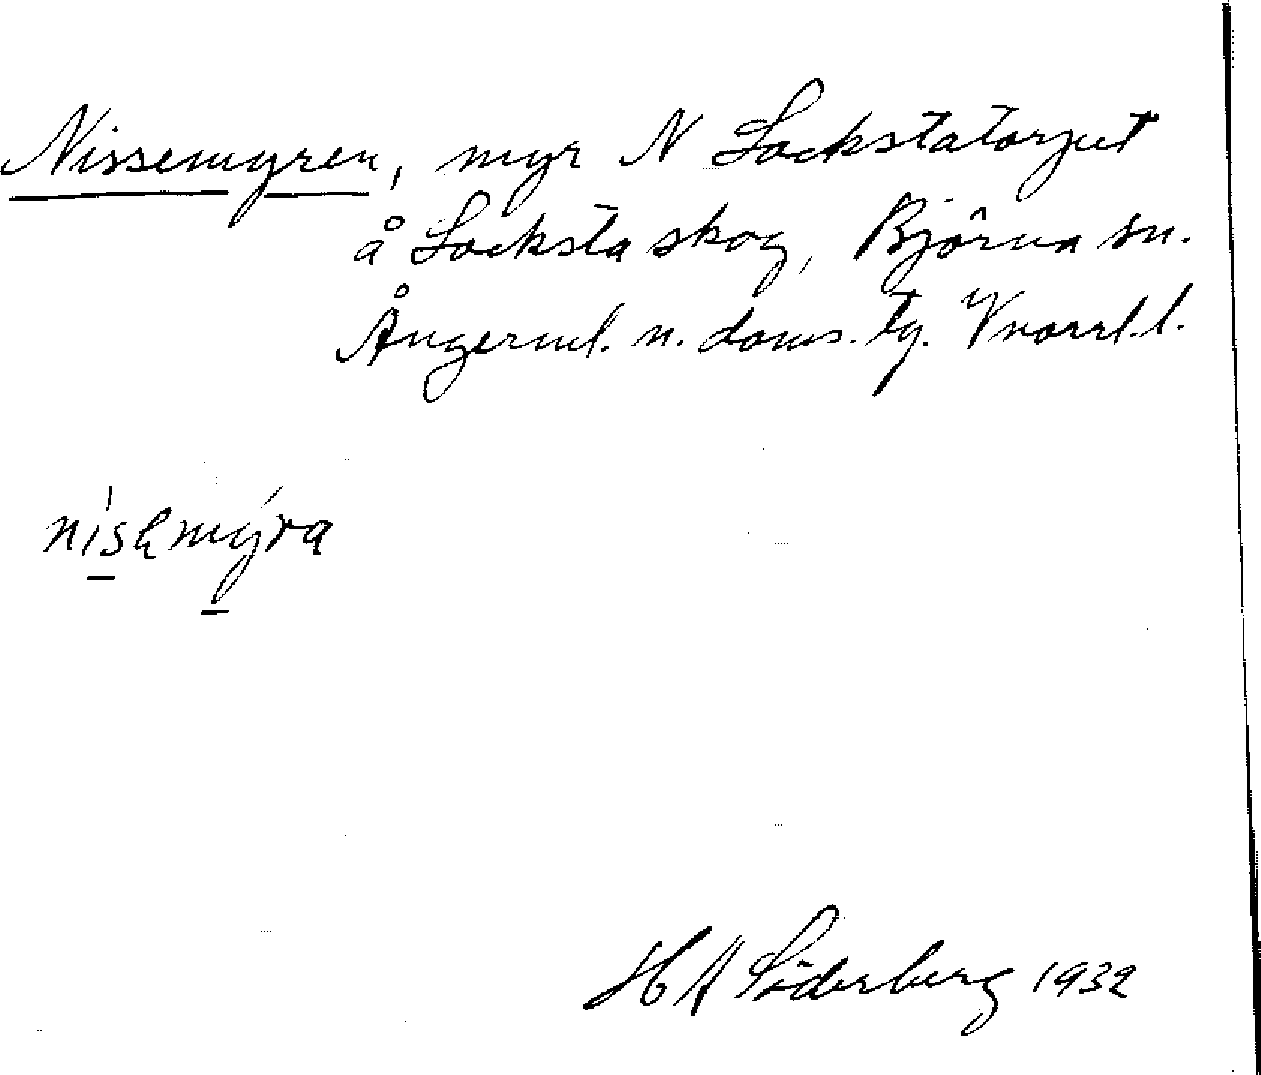 Nissemyren, myr N Locksta torpet
å Locksta skog, Björna sn.
Ångerml. n. doms. tg. Vnorrl.l.
nisamýra
H A Söderberg 1932